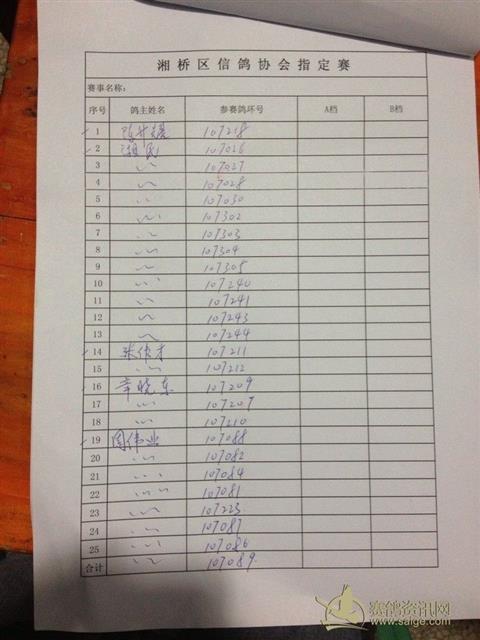 湘桥区信鸽协会指定赛
赛事名称:
序号 鸽主姓名 参赛鸽环号 A档 B档
1 107218
2 107026
3 〃 107027
4 〃 107028
5 〃 107030
6 〃 107302
7 〃 107303
8 〃 107304
9 〃 107305
10 〃 107240
11 〃 107241
12 〃 107243
13 〃 107244
14 张伟才 107211
15 〃 107212
16 章晓东 107209
17 〃 107207
18 〃 107210
19 周伟业 107088
20 〃 107082
21 〃 107084
22 〃 107081
23 〃 107223
24 〃 107087
25 〃 107086
合计 〃 107089
赛鸽资讯网
www.saige.com